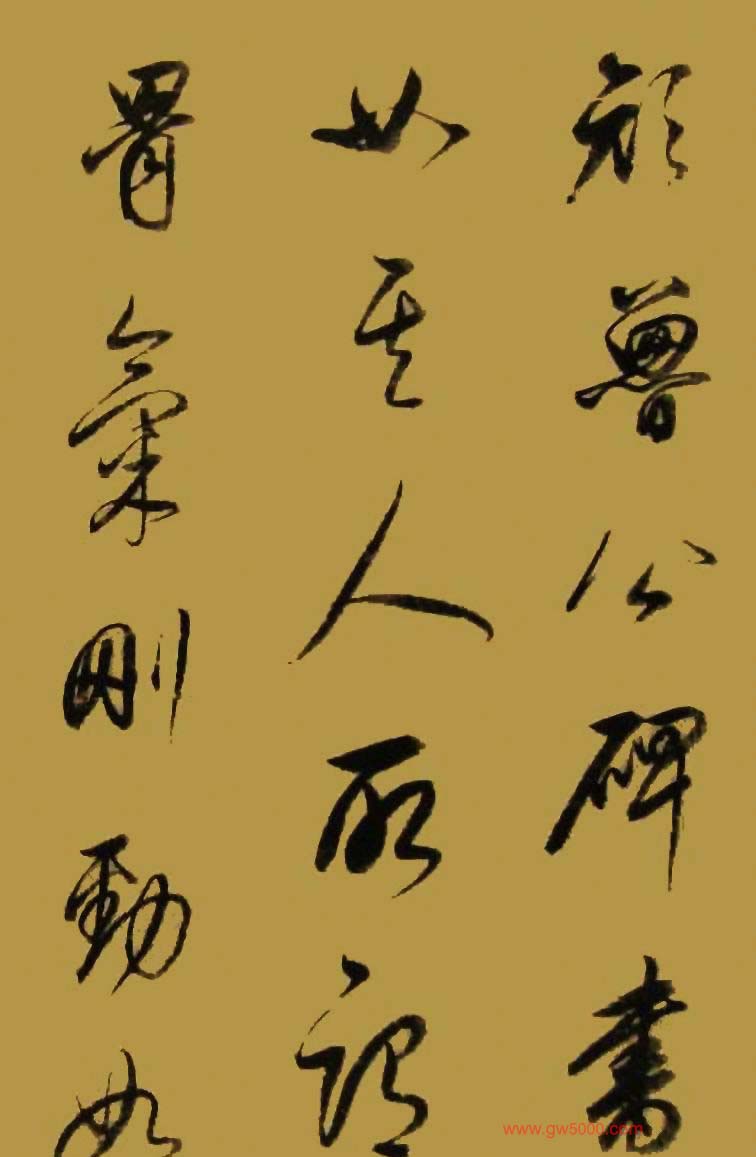 颜鲁公碑書
如其人所谓
骨氣刚勁如
www.gw5000.com